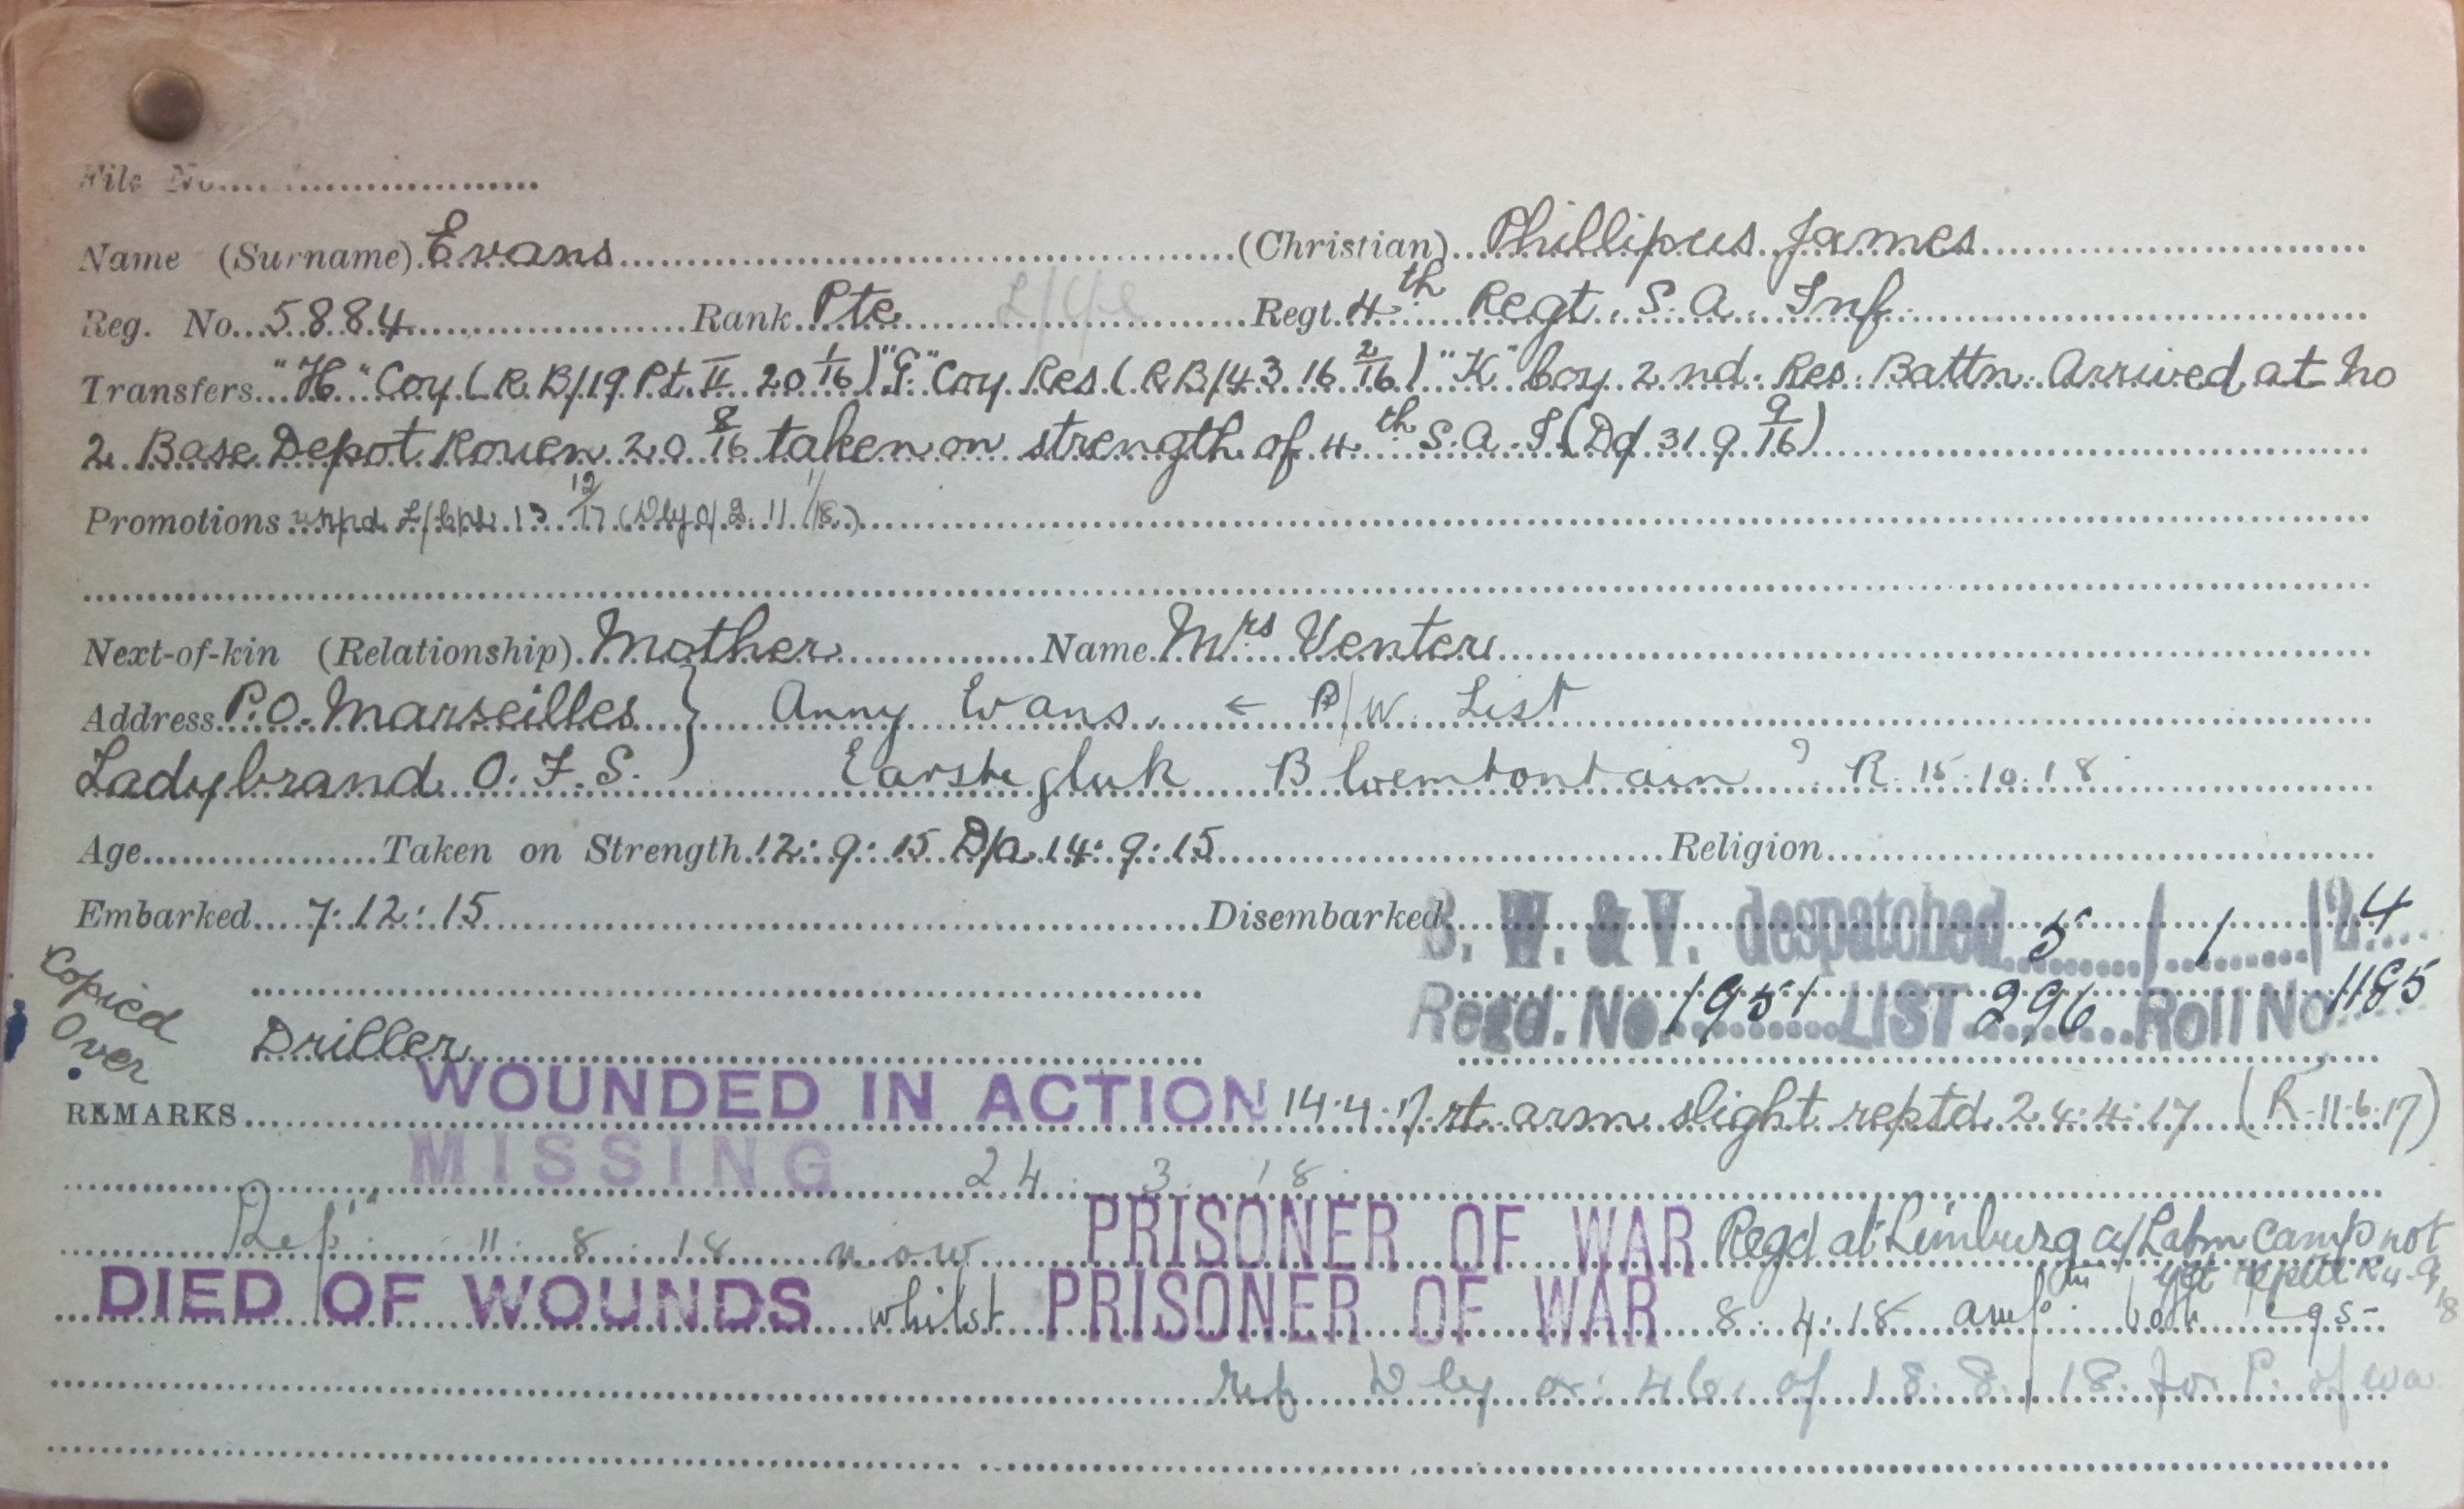 File No.
Name (Surname) Evans (Christian) Phillipus James
Reg. No. 5884 Rank Pte L/Cpl Regt. 4th Regt. S.A. Inf.
Transfers "H" Coy (R.B/19 Pt. II 20 1/16) Coy Res (R.B/43 16 2/16) "K" Coy 2nd Res. Battn. Arrived at No
2 Base Depot Rouen 20 8/16 taken on strength of 4th S.A.I (Do/ 31 9 9/16)
Promotions L/Cpl 13 12/17 (Dly O/ 2. 11 1/18)
Next-of-kin (Relationship) Mother Name Mrs Venter
Address P.O. Marseilles } Anny Evans. ← P/W List
Ladybrand O.F.S. Earstegluk Bloemtontain ? R. 15.10.18
Age Taken on Strength 12:9:15 D/a 14:9:15 Religion
Embarked 7:12:15 Disembarked
B. W. & V. despatched 5/1/24
Copied Over
Regd. No. 1951 LIST 296 Roll No 1185
Driller
REMARKS WOUNDED IN ACTION 14.4.17 rt arm slight reptd 24:4:17 (R.11.6.17)
MISSING 24 3 18
Rep. 11 8 18 now PRISONER OF WAR Regd at Limburg a/Lahn Camp not
yet reptd R 4.9/18
DIED OF WOUNDS whilst PRISONER OF WAR 8.4.18 ampn both legs -
Ref Dly or: 46 of 18.8.18 for P. of wa